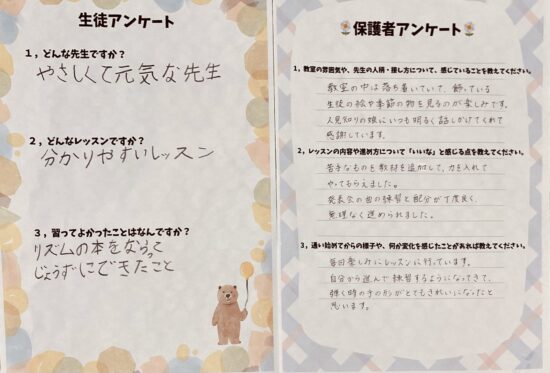 生徒アンケート
1，どんな先生ですか？
やさしくて元気な先生
2，どんなレッスンですか？
分かりやすいレッスン
3，習ってよかったことはなんですか？
リズムの本をならって
じょうずにできたこと
保護者アンケート
1，教室の雰囲気や、先生の人柄・接し方について、感じていることを教えてください。
教室の中は落ち着いていて、飾っている
生徒の絵や季節の物を見るのが楽しみです。
人見知りの娘にいつも明るく話しかけてくれて
感謝しています。
2，レッスンの内容や進め方について「いいな」と感じる点を教えてください。
苦手なものを教材を追加して、力を入れて
やってもらえました。
発表会の曲の練習と配分が丁度良く、
無理なく進められました。
3，通い始めてからの様子や、何か変化を感じたことがあれば教えてください。
毎日楽しみにレッスンに行っています。
自分から進んで練習するようになってきて、
弾く時の手の形がとてもきれいになったと
思います。